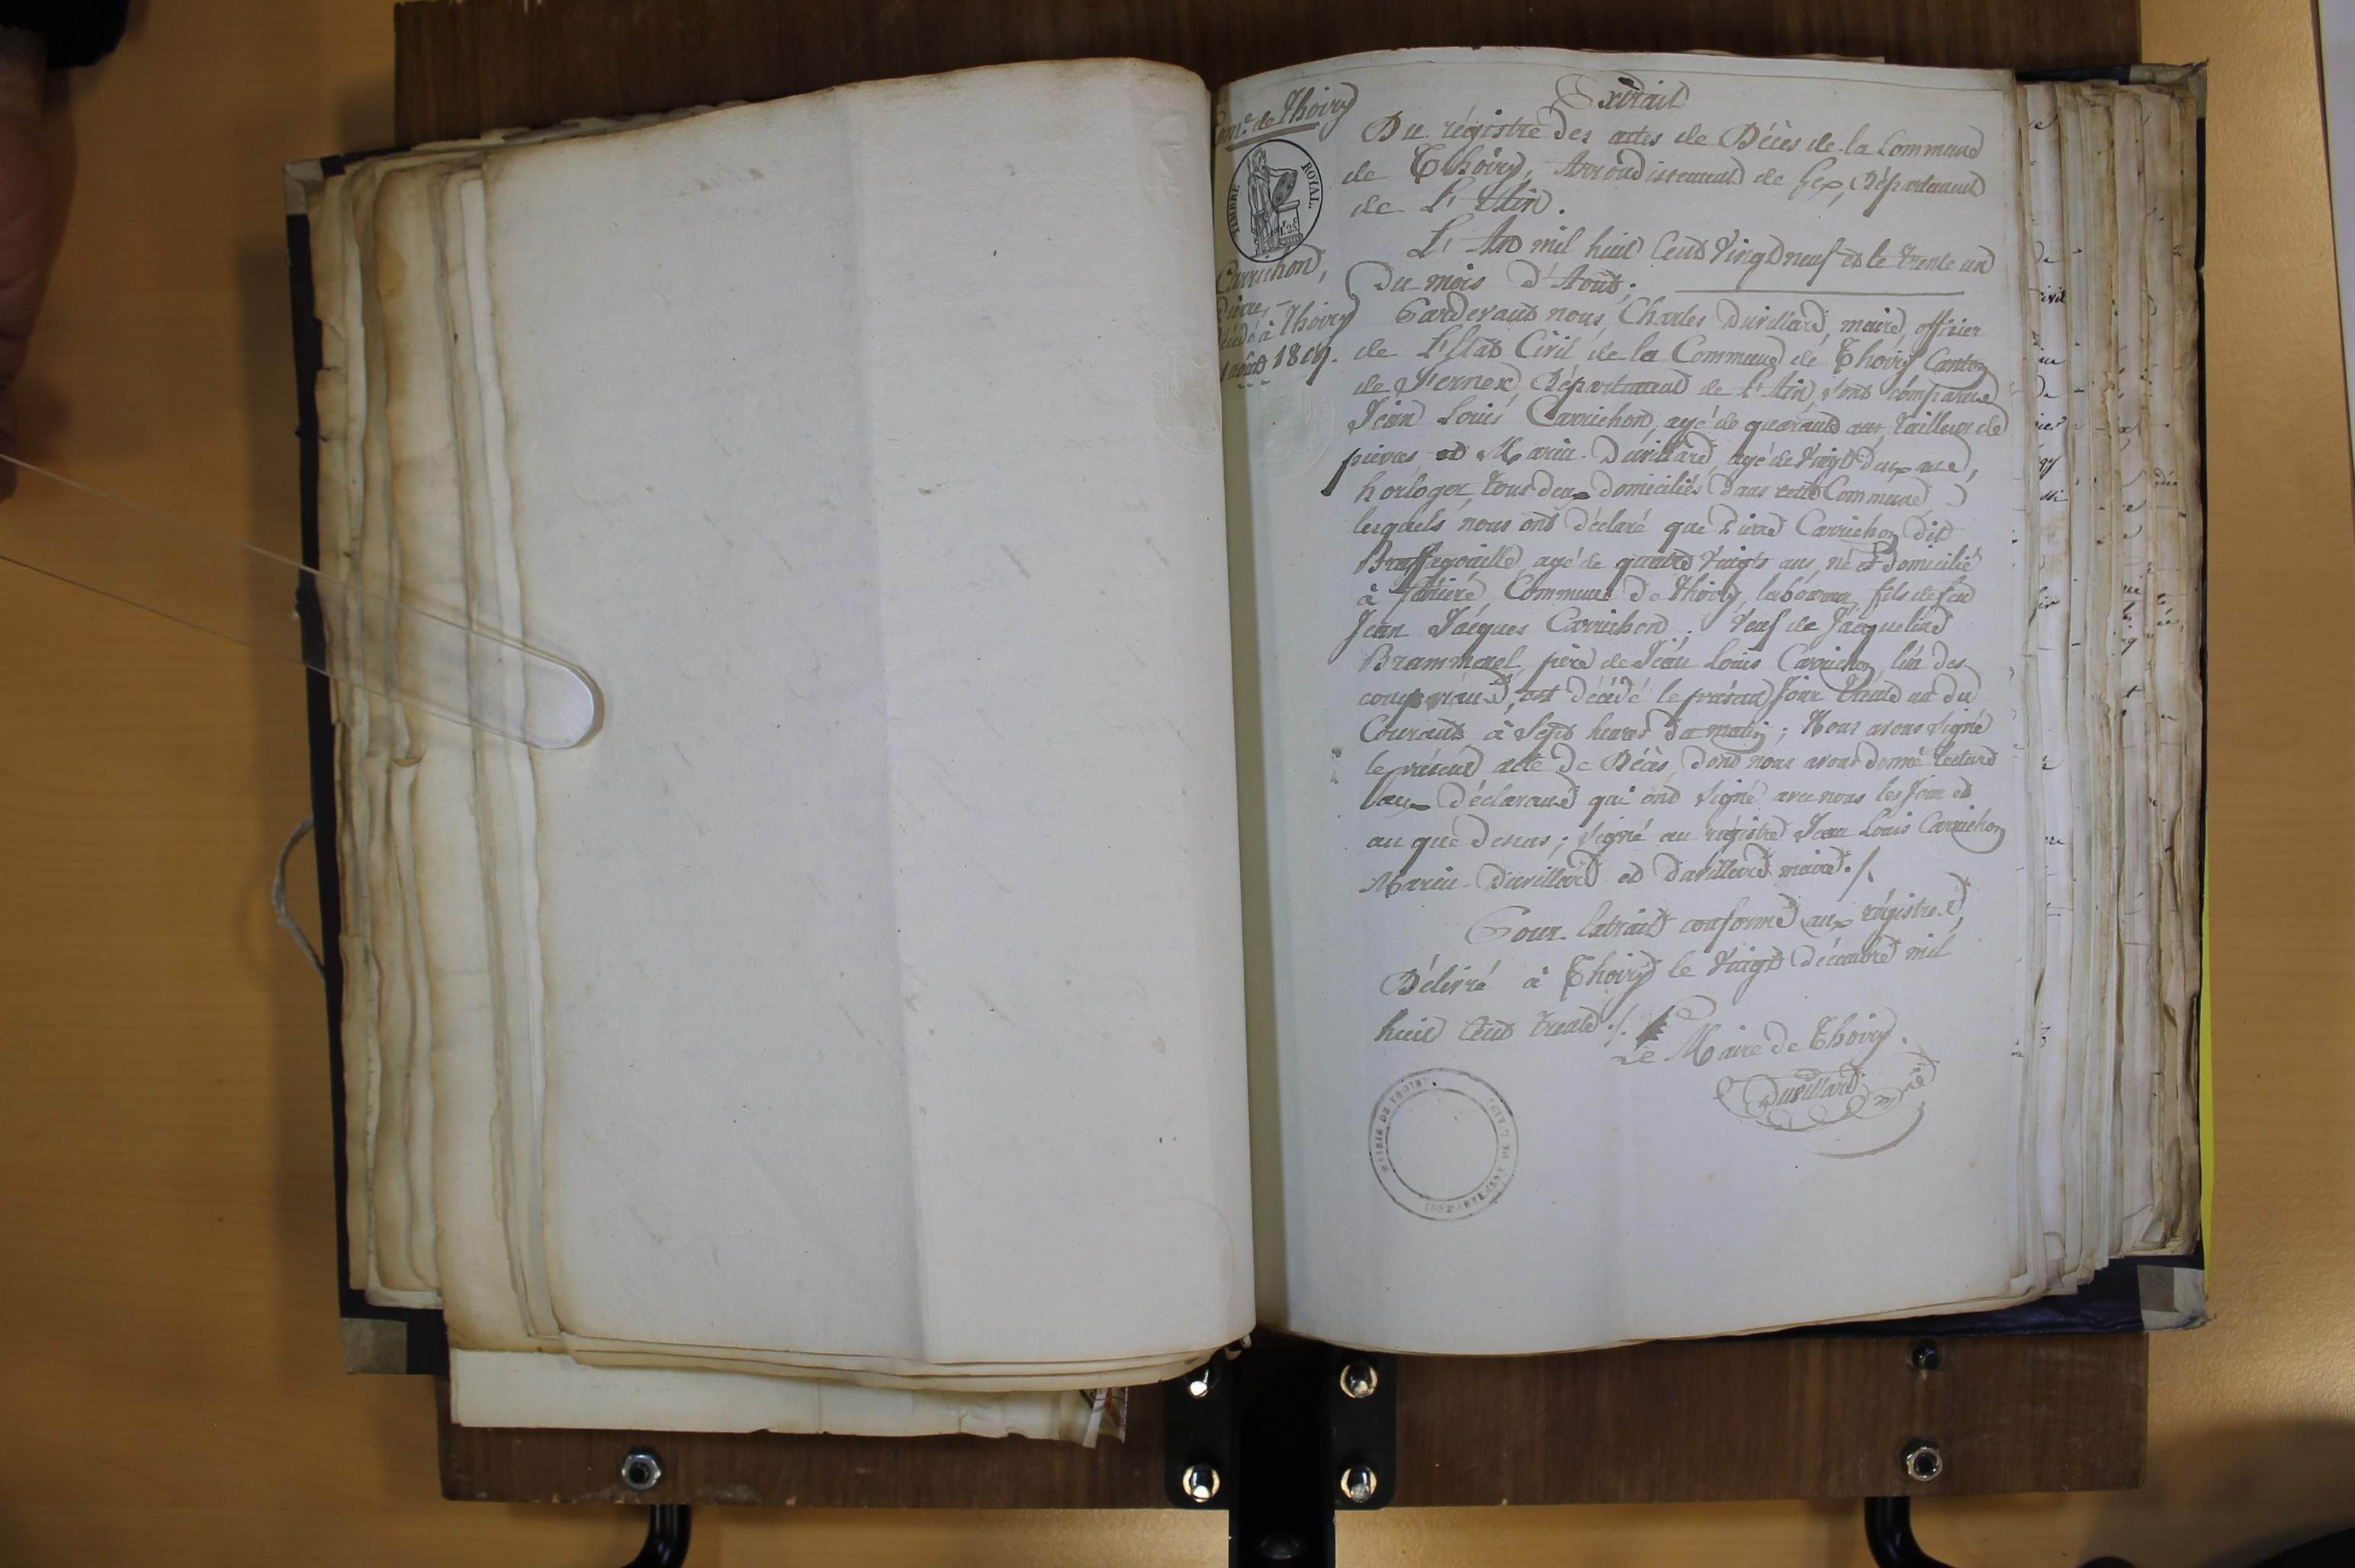 Com.e de Thoiry
TIMBRE ROYAL.
Carrichon,
Pierre,
décédé à Thoiry
août 18
Extrait
Du régistre des actes de Décès de la Commune
de Thoiry, Arrondissement de Gex, Département
de L'Ain.
L'An mil huit Cent Vingt neuf et le trente un
Du mois d'Aout.
Pardevant nous Charles Duvillard, maire, officier
de L'Etat Civil de la Commune de Thoiry Canton
de Fernex, Département de l'Ain, sont comparus
Jean Louis Carrichon, agé de quarante ans, tailleur de
pierres et Marin Duvillard, agé de Vingt deux ans,
horloger, tous deux domiciliés dans cette Commune
lesquels nous ont déclaré que Pierre Carrichon dit
agé de quatre Vingts ans, né et domicilié
à Commune de Thoiry, laboureur, fils de feu
Jean Jacques Carrichon, Veuf de Jacqueline
Brammerel, père de Jean Louis Carrichon l'un des
comparans, est décédé le présent Jour trente un du
Courant à Sept heures du matin; Nous avons signé
le présent acte de Décès, dont nous avons donné lecture
aux déclarans qui ont Signé avec nous les Jour et
an que dessus; signé au régistre Jean Louis Carrichon
Marin Duvillard et Duvillard maire./.
Pour Extrait conforme aux régistres,
Délivré à Thoiry le Vingt décembre mil
huit Cent trente./.
Le Maire de Thoiry.
Duvillard m.re
MAIRIE DE THOIRY. DÉPARTEMENT DE L'AIN